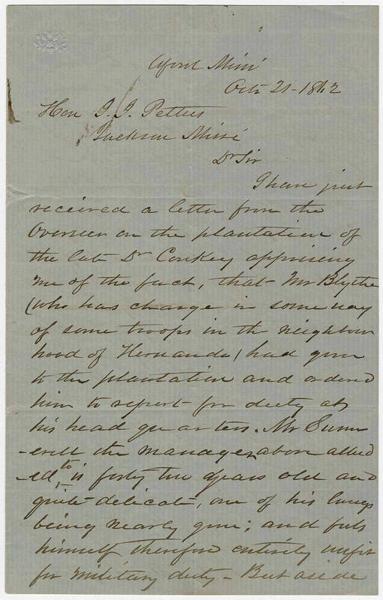 Oxford Missi
Octr 21 - 1862
Hon J. J. Pettus
Jackson Missi
Dr Sir
I have just
received a letter from the
Overseer on the plantation of
the late Dr Conkey apprising
me of the fact, that Mr Blythe
(who has charge in some way
of some troops in the neighbour
hood of Hernando) had gone
to the plantation and ordered
him to report for duty at
his head quarters. Mr Sum
-erill the manager above allud
-ed to, is forty two years old and
quite delicate, one of his lungs
being nearly gone; and feels
himself therefore entirely unfit
for military duty - But aside